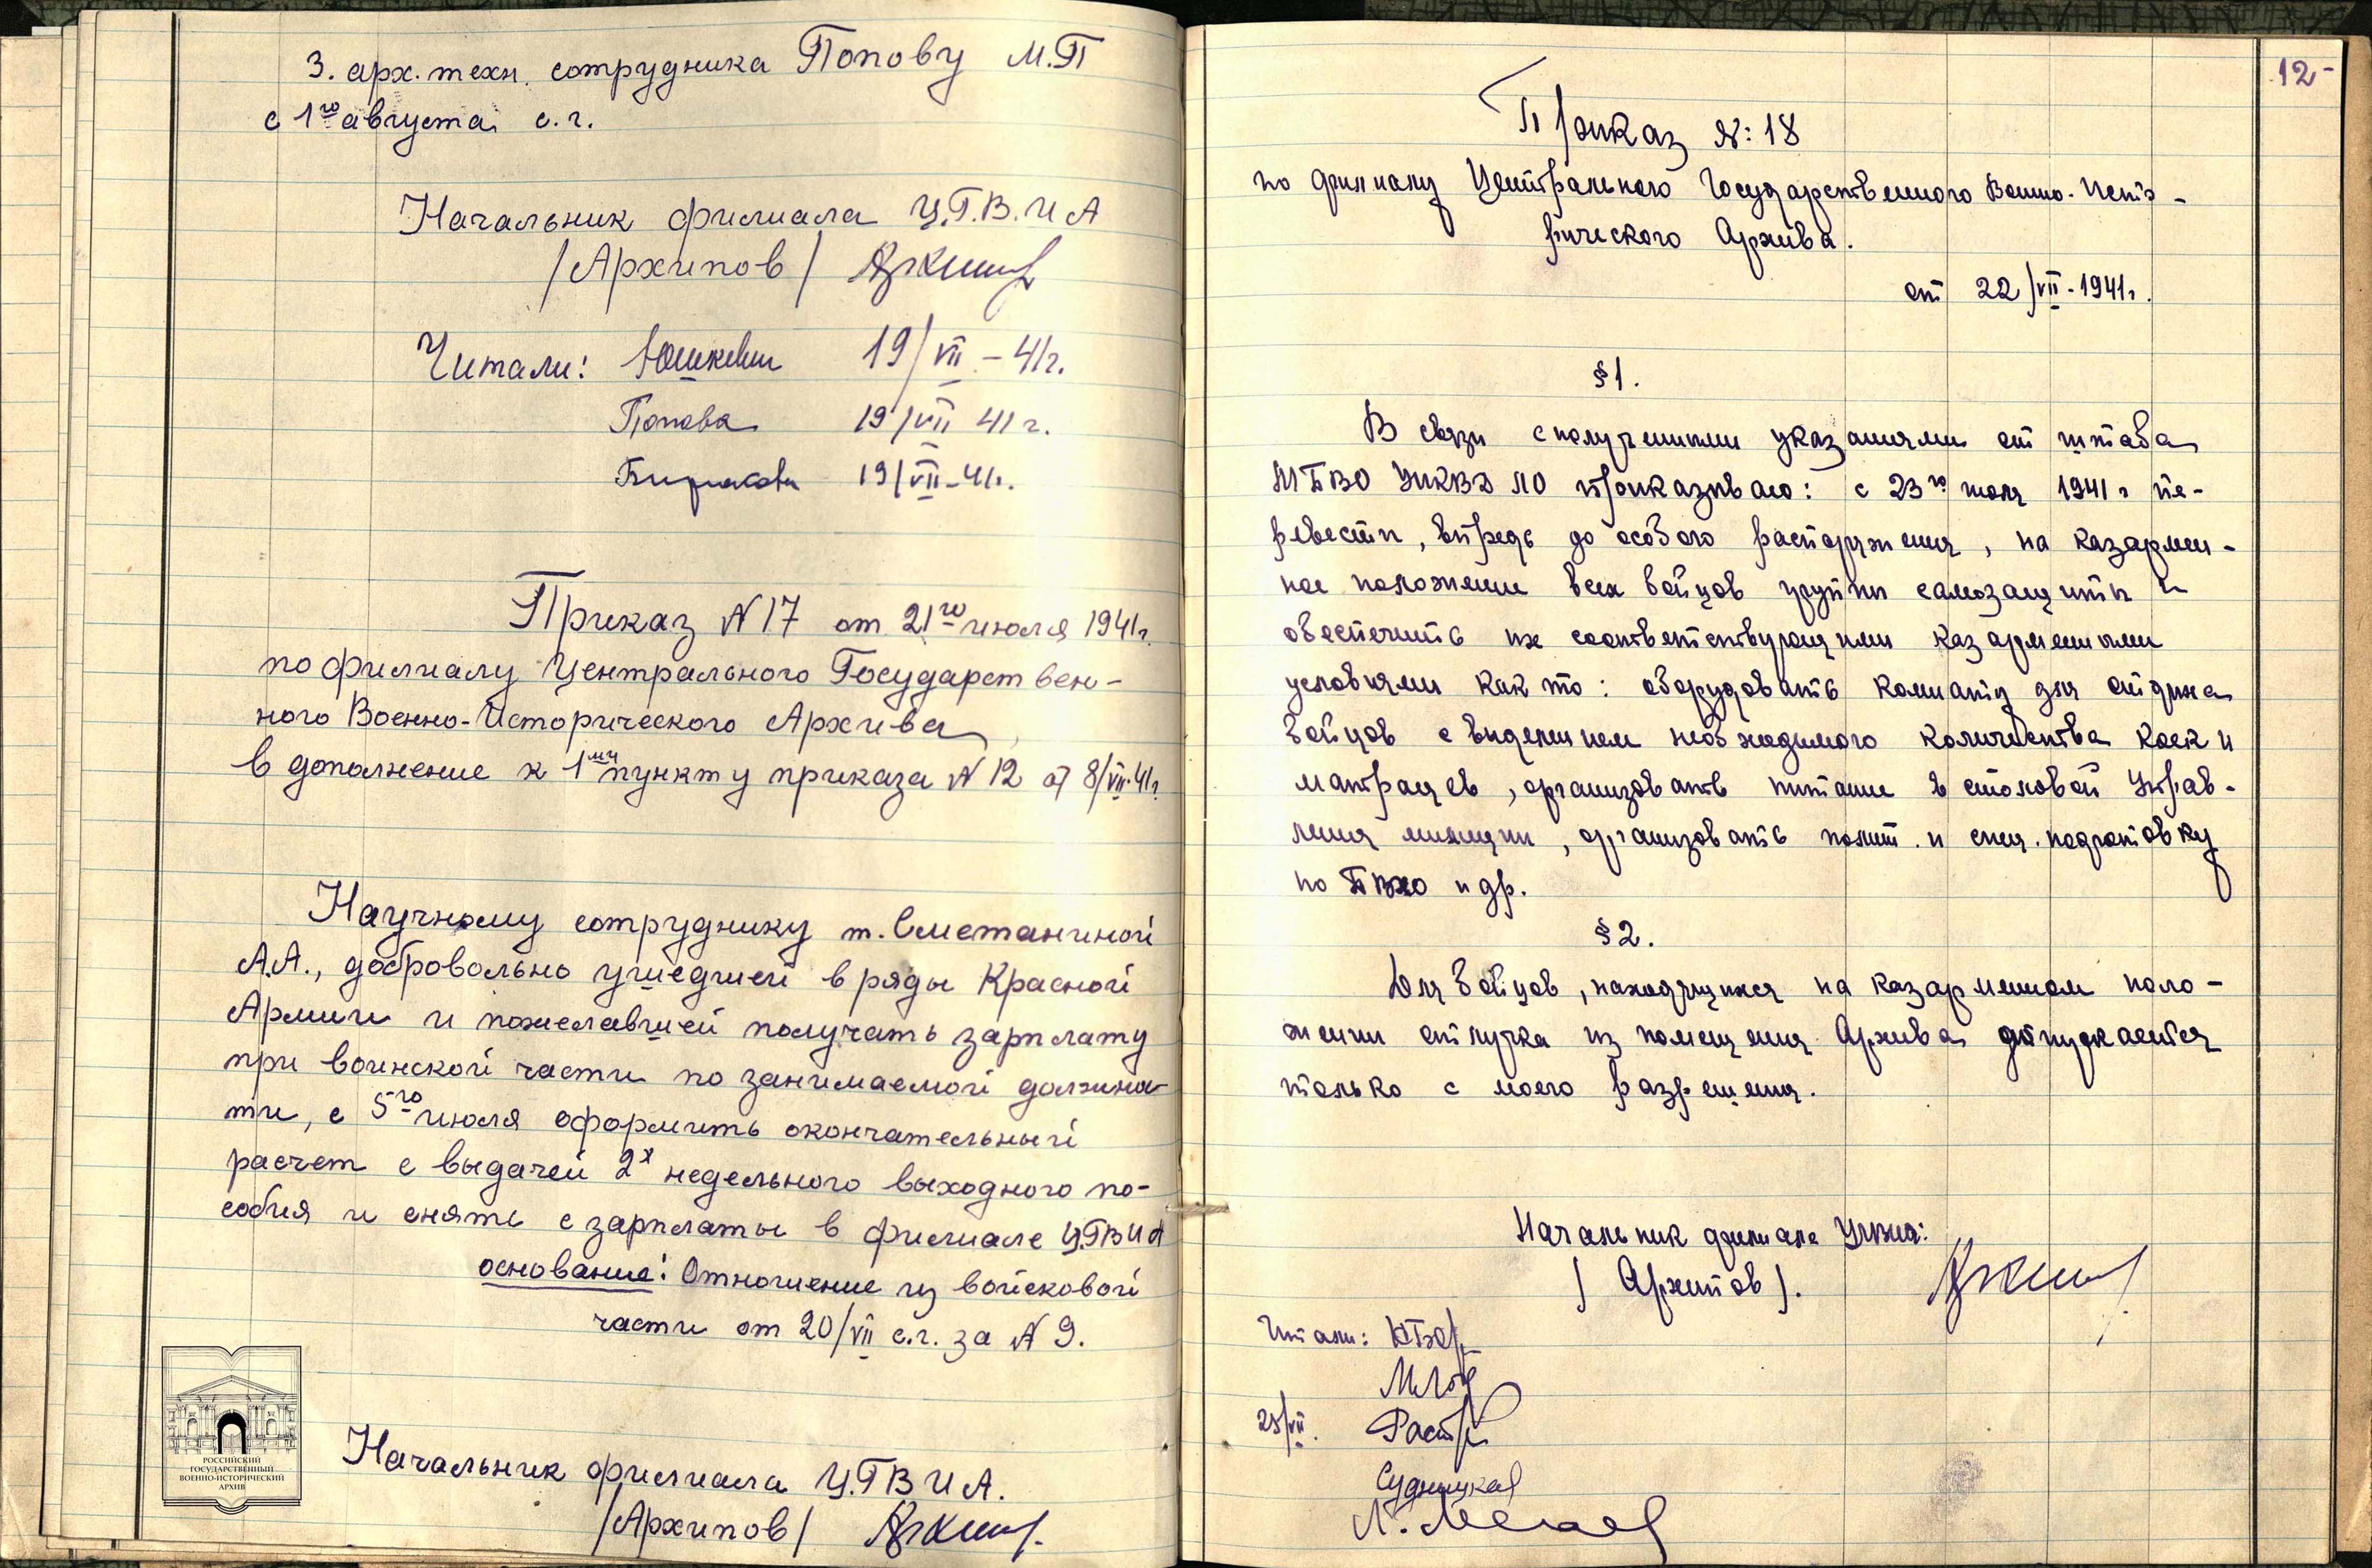 3. арх. техн. сотрудника Попову М.П
с 1го августа с.г.
Начальник филиала Ц.Г.В.И А
/Архипов/
Читали: Юшкевич 19/VII – 41г.
Попова 19/VII 41 г.
19/VII–41г.
Приказ N 17 от 21го июля 1941г.
по филиалу Центрального Государствен-
ного Военно-Исторического Архива
в дополнение к 1му пункту приказа N 12 от 8/VII-41г.
Научному сотруднику т. Сметаниной
А.А., добровольно ушедшей в ряды Красной
Армии и пожелавшей получать зарплату
при воинской части по занимаемой должнос-
ти, с 5го июля оформить окончательный
расчет с выдачей 2х недельного выходного по-
собия и снять с зарплаты в филиале ЦГВИА
основание: Отношение из войсковой
части от 20/VII с.г. за N 9.
Начальник филиала Ц.ГВИА.
/Архипов/
РОССИЙСКИЙ
ГОСУДАРСТВЕННЫЙ
ВОЕННО-ИСТОРИЧЕСКИЙ
АРХИВ
12-
Приказ №: 18
по филиалу Центрального Государственного Военно-Исто-
рического Архива.
от 22/VII-1941г.
§1.
В связи с полученными указаниями от штаба
МПВО УНКВД ЛО приказываю: с 23го июля 1941г пе-
ревести, впредь до особого распоряжения, на казармен-
ное положение всех бойцов группы самозащиты и
обеспечить их соответствующими казарменными
условиями как то: оборудовать комнату для отдыха
бойцов с выделением необходимого количества коек и
матрацев, организовать питание в столовой Управ-
ления милиции, организовать полит. и спец. подготовку
по ПВХО и др.
§2.
Для бойцов, находящихся на казарменном поло-
жении отлучка из помещения Архива допускается
только с моего разрешения.
Начальник филиала ЦГВИА:
/Архипов/.
Читали:
23/VII.
Судницкая